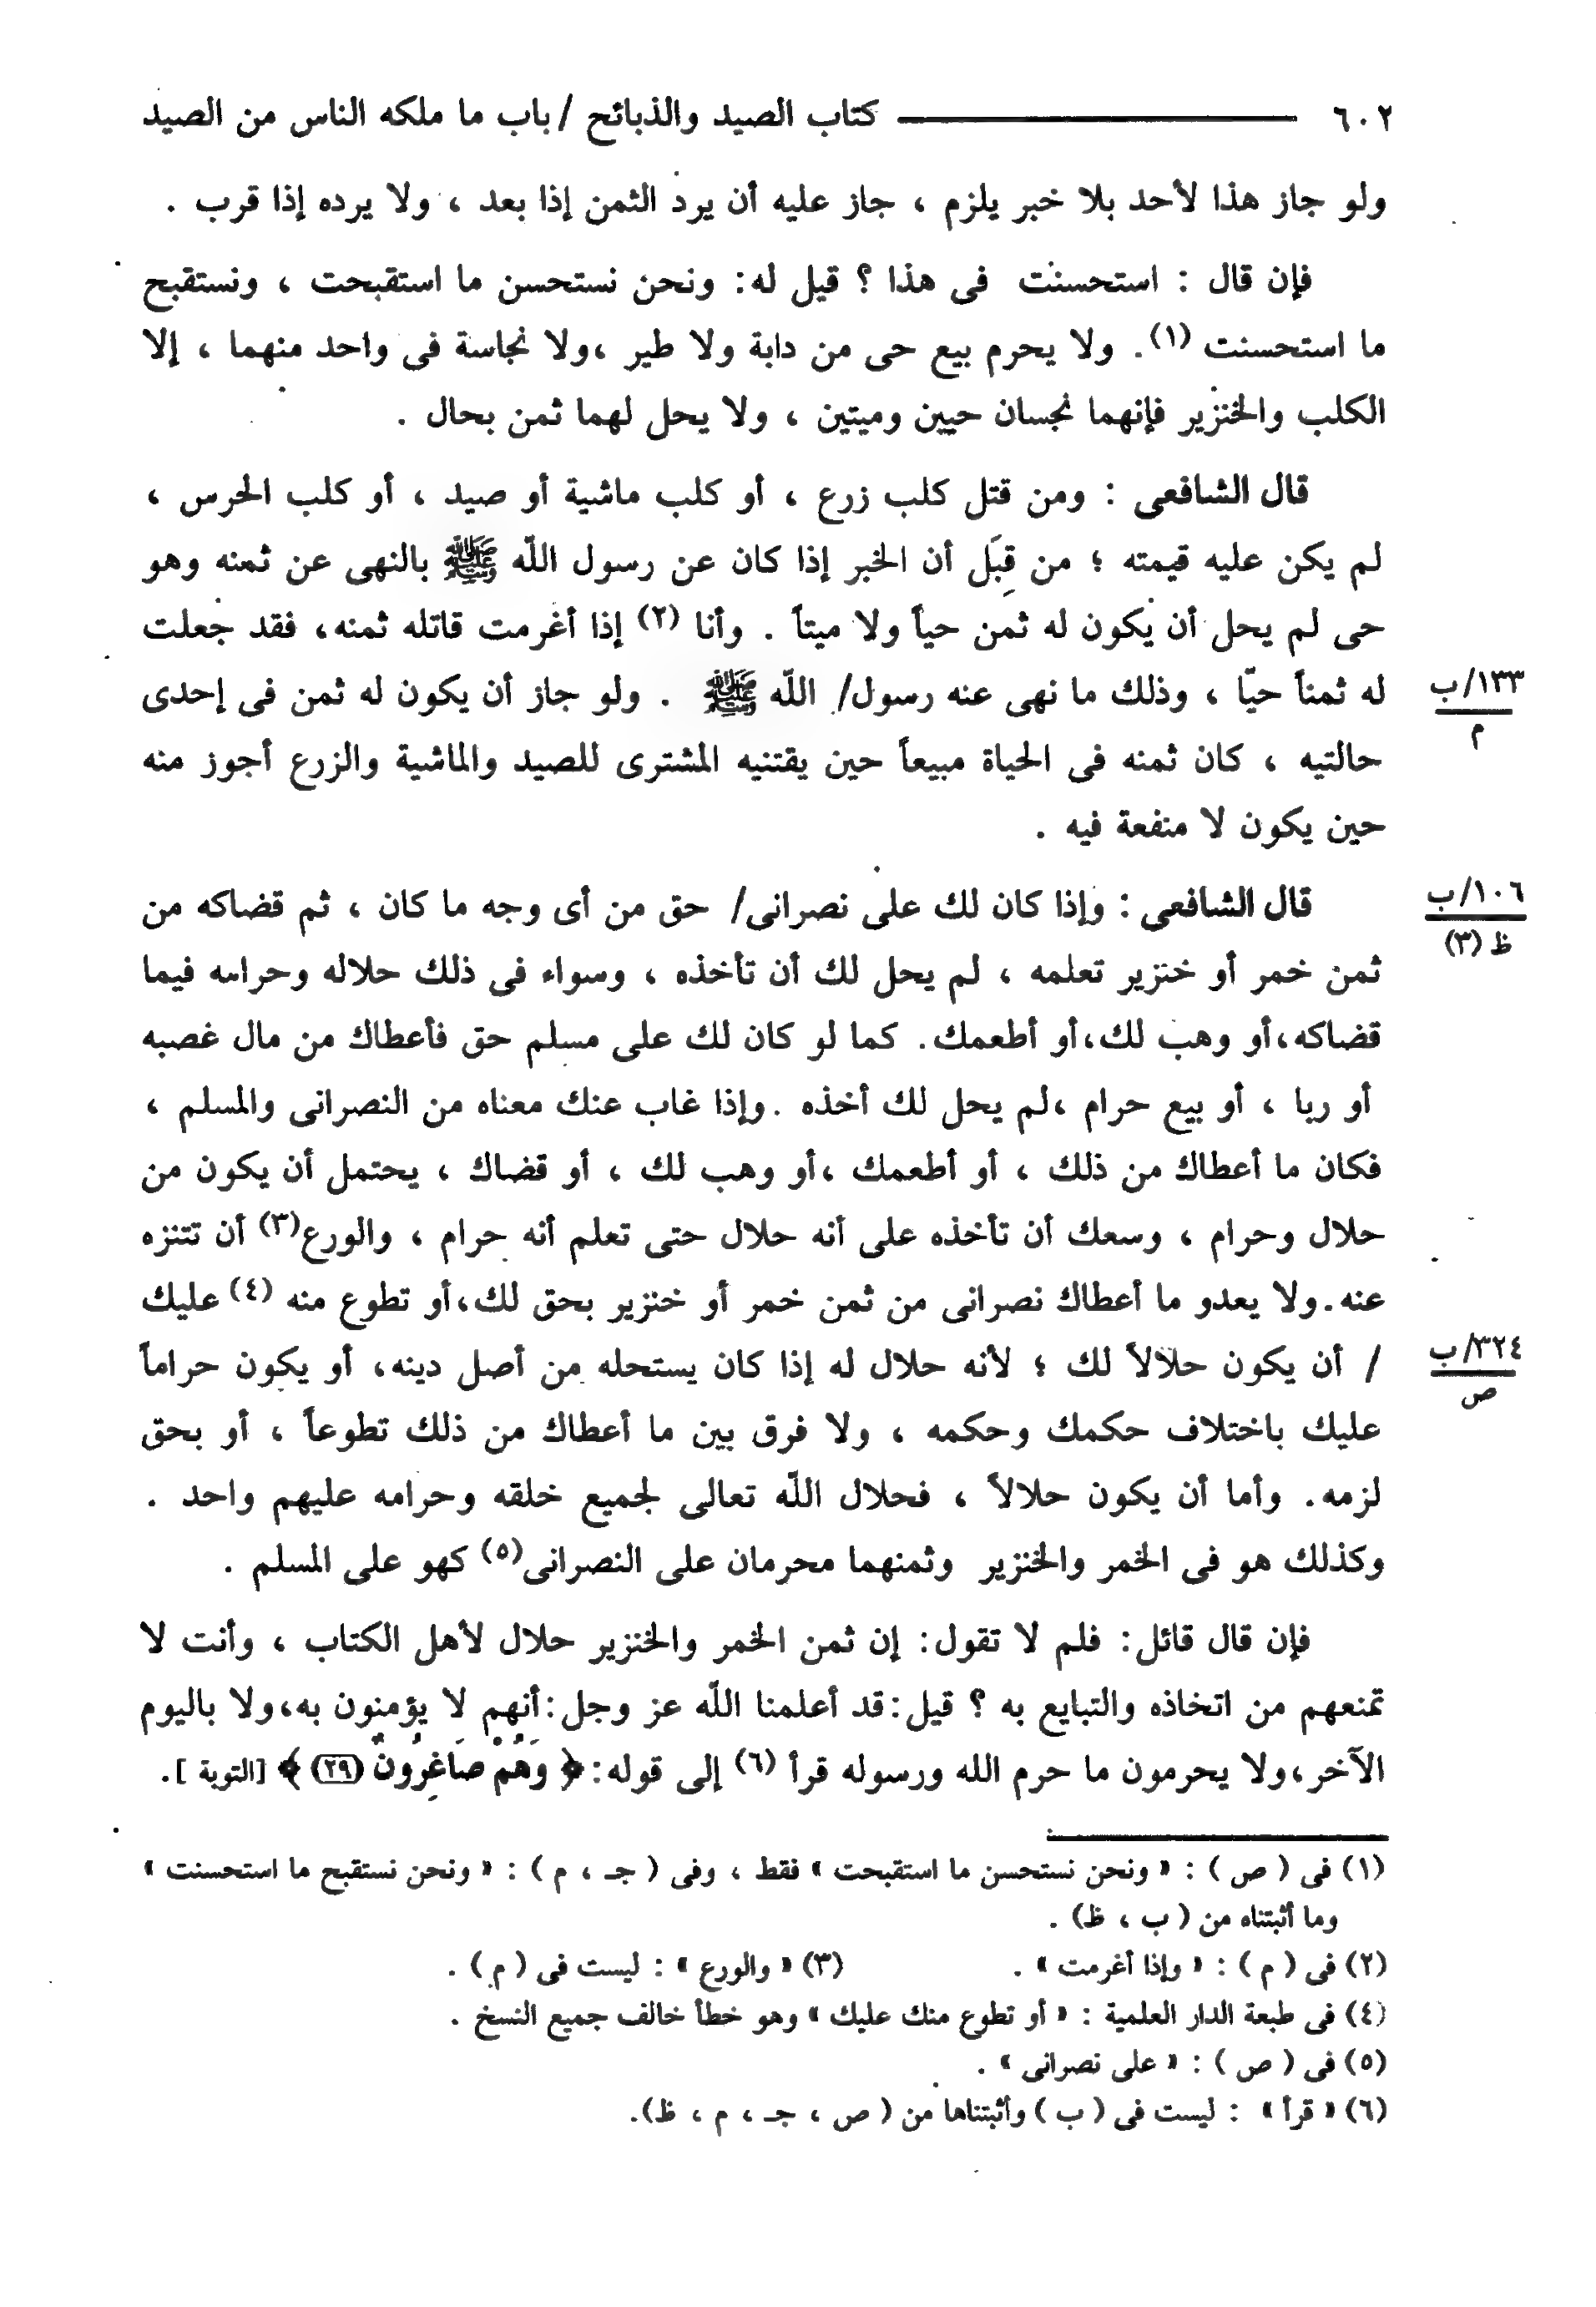 ٦٠٢ كتاب الصيد والذبائح / باب ما ملكه الناس من الصيد
ولو جاز هذا لأحد بلا خبر يلزم ، جاز عليه أن يرد الثمن إذا بعد ، ولا يرده إذا قرب .
فإن قال : استحسنت فى هذا ؟ قيل له: ونحن نستحسن ما استقبحت ، ونستقبح
ما استحسنت (١). ولا يحرم بيع حى من دابة ولا طير ،ولا نجاسة فى واحد منهما ، إلا
الكلب والخنزير فإنهما نجسان حيين وميتين ، ولا يحل لهما ثمن بحال .
قال الشافعى : ومن قتل كلب زرع ، أو كلب ماشية أو صيد ، أو كلب الحرس ،
لم يكن عليه قيمته ؛ من قِبَل أن الخبر إذا كان عن رسول اللّه ﷺ بالنهى عن ثمنه وهو
حى لم يحل أن يكون له ثمن حياً ولا ميتاً . وأنا (٢) إذا أغرمت قاتله ثمنه، فقد جعلت
له ثمناً حيّا ، وذلك ما نهى عنه رسول/ اللّه ﷺ . ولو جاز أن يكون له ثمن فى إحدى
١٣٣/ب
م
حالتيه ، كان ثمنه فى الحياة مبيعاً حين يقتنيه المشترى للصيد والماشية والزرع أجوز منه
حين يكون لا منفعة فيه .
قال الشافعى : وإذا كان لك على نصرانى/ حق من أى وجه ما كان ، ثم قضاكه من
١٠٦/ب
ظ (٣)
ثمن خمر أو خنزير تعلمه ، لم يحل لك أن تأخذه ، وسواء فى ذلك حلاله وحرامه فيما
قضاكه،أو وهب لك،أو أطعمك. كما لو كان لك على مسلم حق فأعطاك من مال غصبه
أو ربا ، أو بيع حرام ،لم يحل لك أخذه .وإذا غاب عنك معناه من النصرانى والمسلم ،
فكان ما أعطاك من ذلك ، أو أطعمك ،أو وهب لك ، أو قضاك ، يحتمل أن يكون من
حلال وحرام ، وسعك أن تأخذه على أنه حلال حتى تعلم أنه حرام ، والورع(٣) أن تتنزه
عنه.ولا يعدو ما أعطاك نصرانى من ثمن خمر أو خنزير بحق لك،أو تطوع منه (٤) عليك
/ أن يكون حلالاً لك ؛ لأنه حلال له إذا كان يستحله من أصل دينه، أو يكون حراماً
٣٢٤/ب
ص
عليك باختلاف حكمك وحكمه ، ولا فرق بين ما أعطاك من ذلك تطوعاً ، أو بحق
لزمه. وأما أن يكون حلالاً ، فحلال اللّه تعالى لجميع خلقه وحرامه عليهم واحد .
وكذلك هو فى الخمر والخنزير وثمنهما محرمان على النصرانى(٥) كهو على المسلم .
فإن قال قائل: فلم لا تقول: إن ثمن الخمر والخنزير حلال لأهل الكتاب ، وأنت لا
تمنعهم من اتخاذه والتبايع به ؟ قيل:قد أعلمنا اللّه عز وجل:أنهم لا يؤمنون به،ولا باليوم
الآخر،ولا يحرمون ما حرم الله ورسوله قرأ (٦) إلى قوله:﴿ وَهُمْ صَاغِرُونَ (٢٩) ﴾ [التوبة ].
(١) فى ( ص ) : « ونحن نستحسن ما استقبحت » فقط ، وفى ( جـ ، م ) : « ونحن نستقبح ما استحسنت »
وما أثبتناه من ( ب ، ظ) .
(٢) فى ( م ) : « وإذا أغرمت » . (٣) « والورع » : ليست فى ( م ) .
(٤) فى طبعة الدار العلمية : « أو تطوع منك عليك » وهو خطأ خالف جميع النسخ .
(٥) فى ( ص ) : « على نصرانى » .
(٦) « قرأ » : ليست فى ( ب ) وأثبتناها من ( ص ، جـ ، م ، ظ).